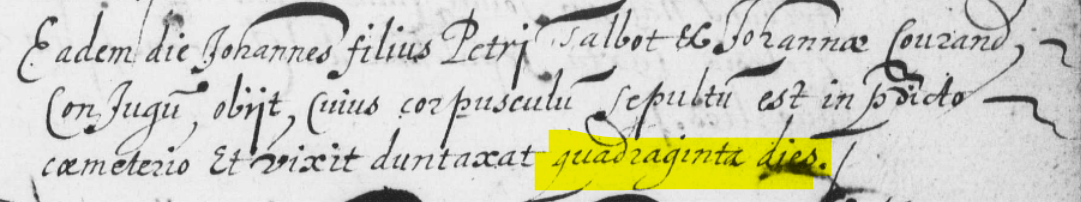 Eadem die Johannes filius Petri Talbot & Johannæ Courand,
Conjugũ, obijt, Cuius corpusculũ sepultũ est in p̃dicto
cœmeterio Et vixit duntaxat quadraginta dies.